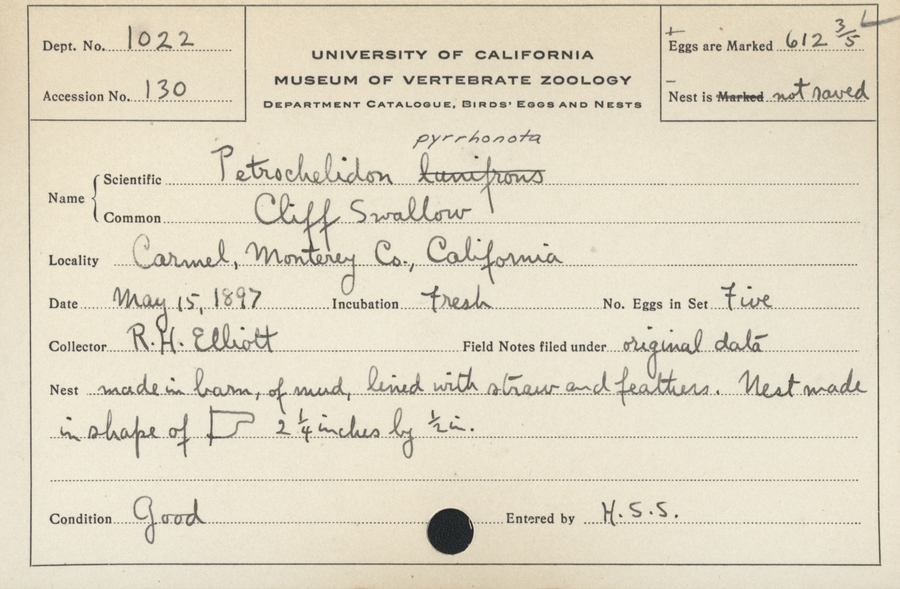 Dept. No. 1022
UNIVERSITY OF CALIFORNIA
MUSEUM OF VERTEBRATE ZOOLOGY
DEPARTMENT CATALOGUE, BIRDS' EGGS AND NESTS
Eggs are Marked 612 3/5
Accession No. 130
Nest is Marked not saved
pyrrhonota
Name
Scientific Petrochelidon lunifrons
Common Cliff Swallow
Locality Carmel, Monterey Co., California
Date May 15, 1897 Incubation Fresh No. Eggs in Set Five
Collector R.H. Elliott Field Notes filed under original data
Nest made in barn, of mud, lined with straw and feathers. Nest made
in shape of 2 1/4 inches by 1/2 in.
Condition Good Entered by H.S.S.